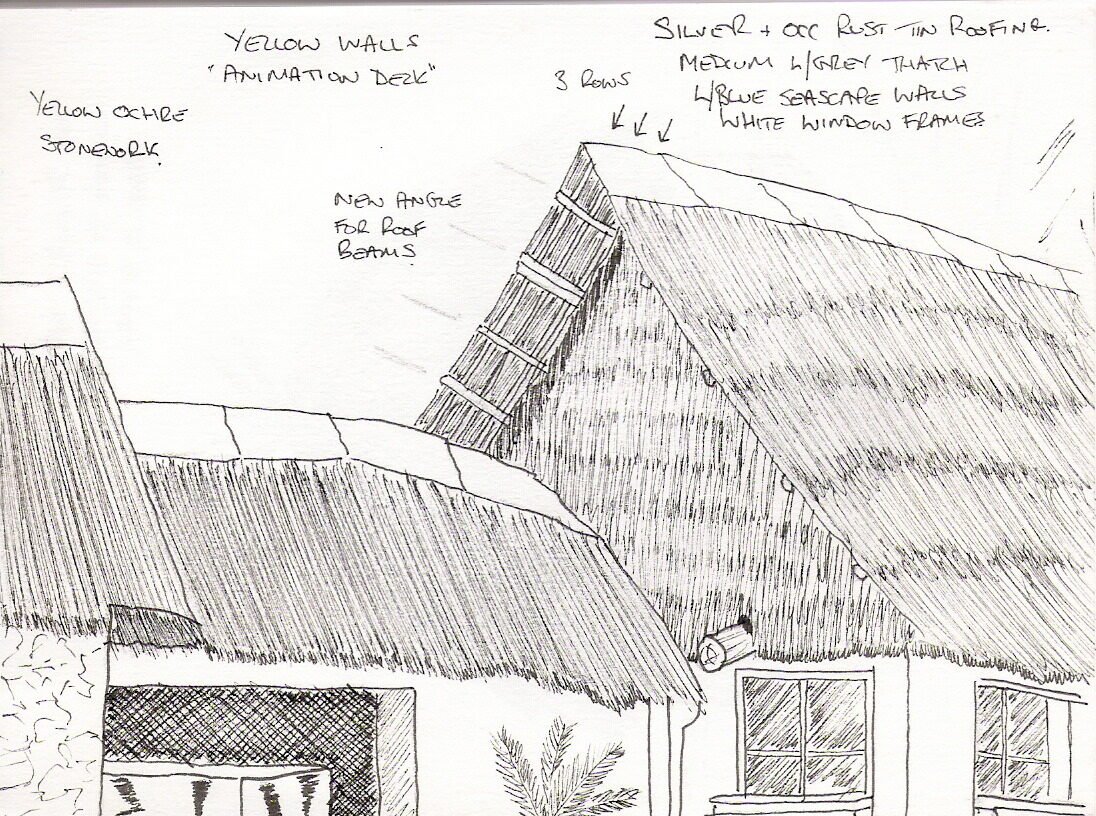 YELLOW WALLS
"ANIMATION DEZK"
YELLOW OCHRE
STONEWORK.
3 ROWS
SILVER + OCC RUST TIN ROOFING.
MEDIUM L/GREY THATCH
L/BLUE SEASCAPE WALLS
WHITE WINDOW FRAMES
NEW ANGLE
FOR ROOF
BEAMS.